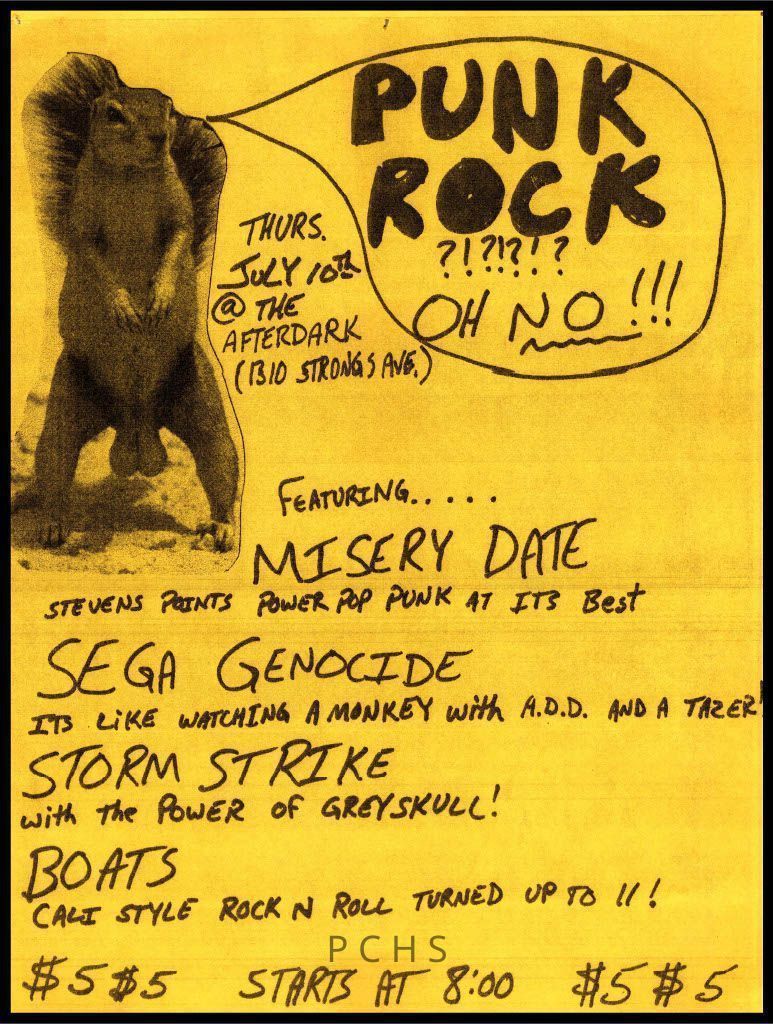 PUNK
ROCK
?!?!?!?
OH NO!!!
THURS.
JULY 10th
@ THE
AFTERDARK
(1310 STRONGS AVE.)
FEATURING.....
MISERY DATE
STEVENS POINTS POWER POP PUNK AT ITS Best
SEGA GENOCIDE
ITS LIKE WATCHING A MONKEY with A.D.D. AND A TAZER!
STORM STRIKE
with The POWER OF GREYSKULL!
BOATS
CALI STYLE ROCK N ROLL TURNED UP TO 11!
PCHS
$5 $5 STARTS AT 8:00 $5 $5